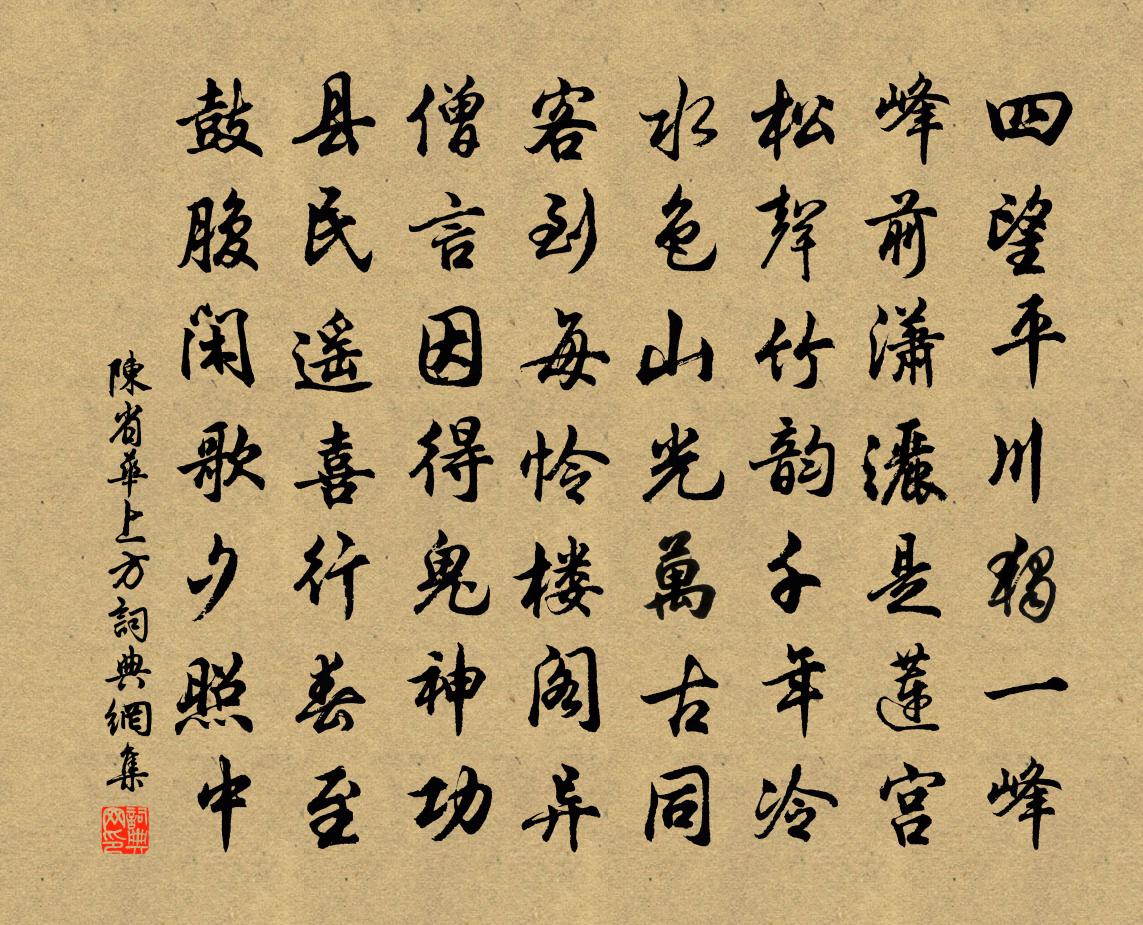 四望平川獨一峰
峰前瀟灑是蓮宫
松聲竹韵千年冷
水色山光萬古同
客到每怜楼阁异
僧言因得鬼神功
县民遥喜行春至
鼓腹闲歌夕照中
陳省華上方詞典網集
詞典网印